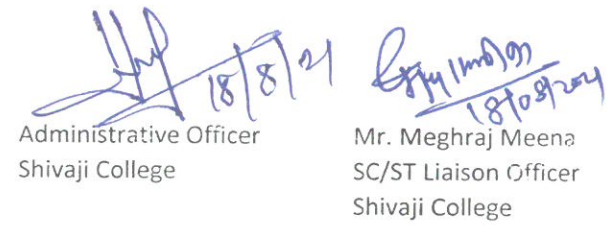 18/8/21
18/08/2021
Administrative Officer
Shivaji College
Mr. Meghraj Meena
SC/ST Liaison Officer
Shivaji College